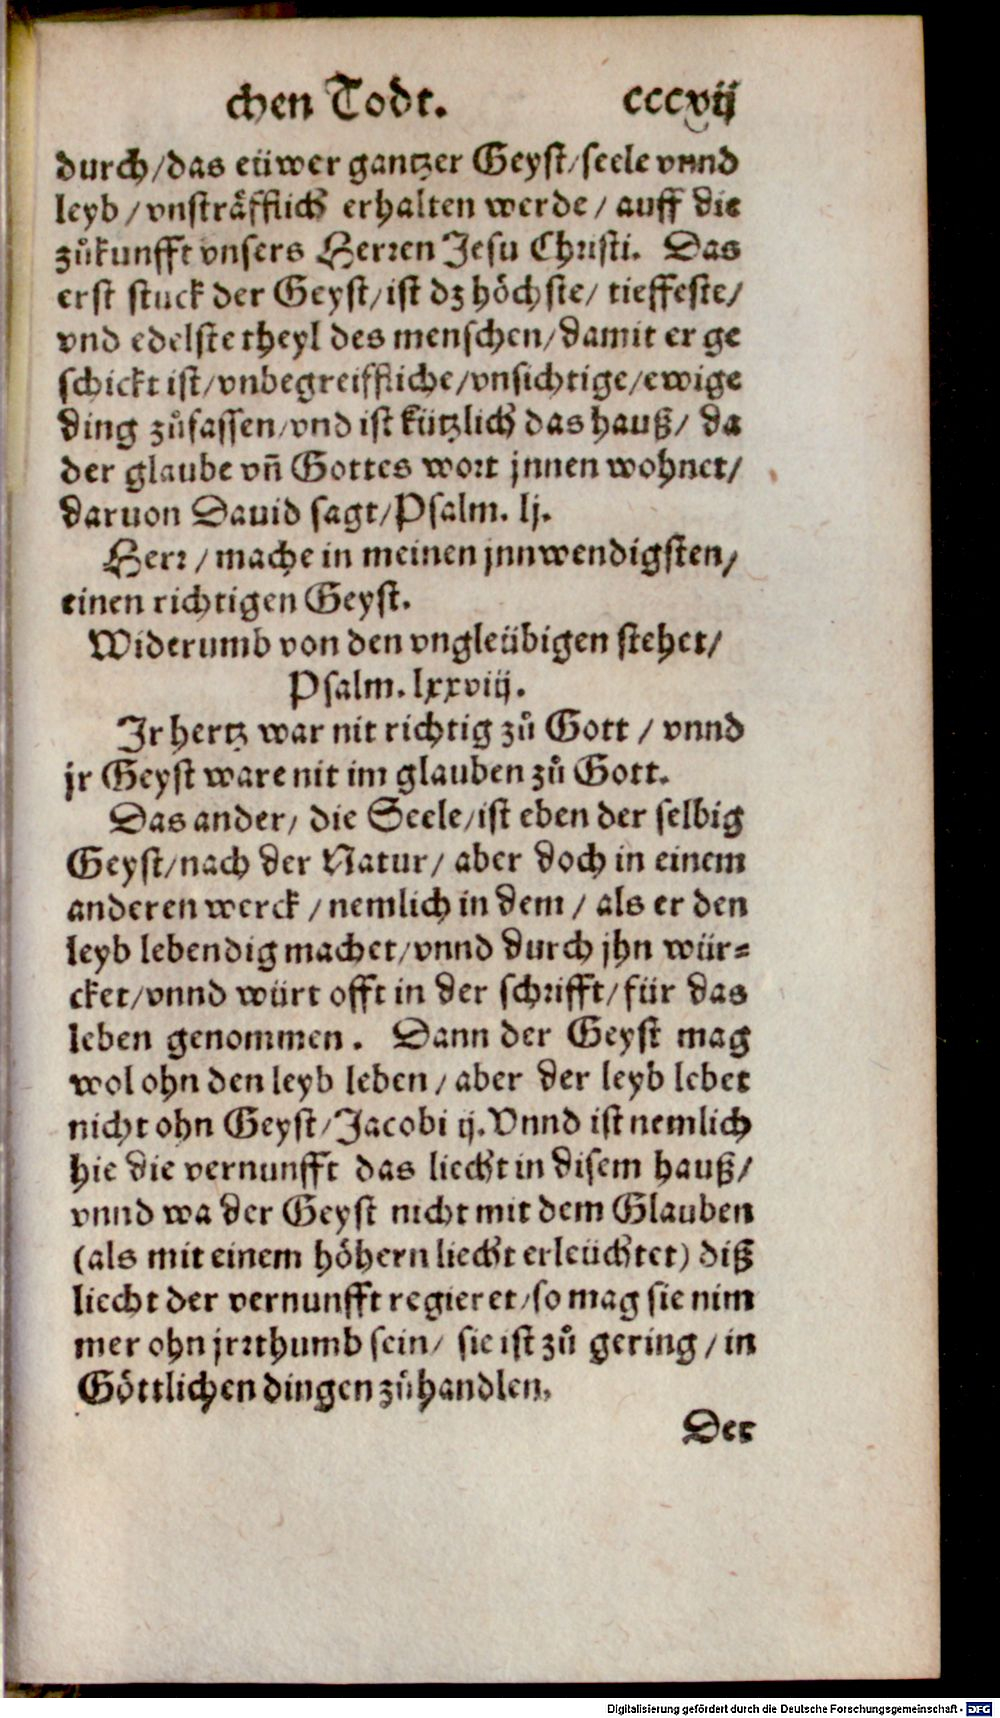 chen Todt. cccvij
durch/das eüwer gantzer Geyst/seele vnnd
leyb/vnsträfflich erhalten werde/auff die
zůkunfft vnsers Herren Jesu Christi. Das
erst stuck der Geyst/ist dz höchste/tieffeste/
vnd edelste theyl des menschen/damit er ge
schickt ist/vnbegreiffliche/vnsichtige/ewige
ding zůfassen/vnd ist kützlich das hauß/da
der glaube vñ Gottes wort jnnen wohnet/
daruon Dauid sagt/Psalm. lj.
Herr/mache in meinen jnnwendigsten/
einen richtigen Geyst.
Widerumb von den vngleübigen stehet/
Psalm. lxxviij.
Ir hertz war nit richtig zů Gott/vnnd
jr Geyst ware nit im glauben zů Gott.
Das ander/die Seele/ist eben der selbig
Geyst/nach der Natur/aber doch in einem
anderen werck/nemlich in dem/als er den
leyb lebendig machet/vnnd durch jhn wür=
cket/vnnd würt offt in der schrifft/für das
leben genommen. Dann der Geyst mag
wol ohn den leyb leben/aber der leyb lebet
nicht ohn Geyst/Jacobi ij. Vnnd ist nemlich
hie die vernunfft das liecht in disem hauß/
vnnd wa der Geyst nicht mit dem Glauben
(als mit einem höhern liecht erleüchtet) diß
liecht der vernunfft regieret/so mag sie nim
mer ohn jrrthumb sein/sie ist zů gering/in
Göttlichen dingen zůhandlen.
Der
Digitalisierung gefördert durch die Deutsche Forschungsgemeinschaft - DFG